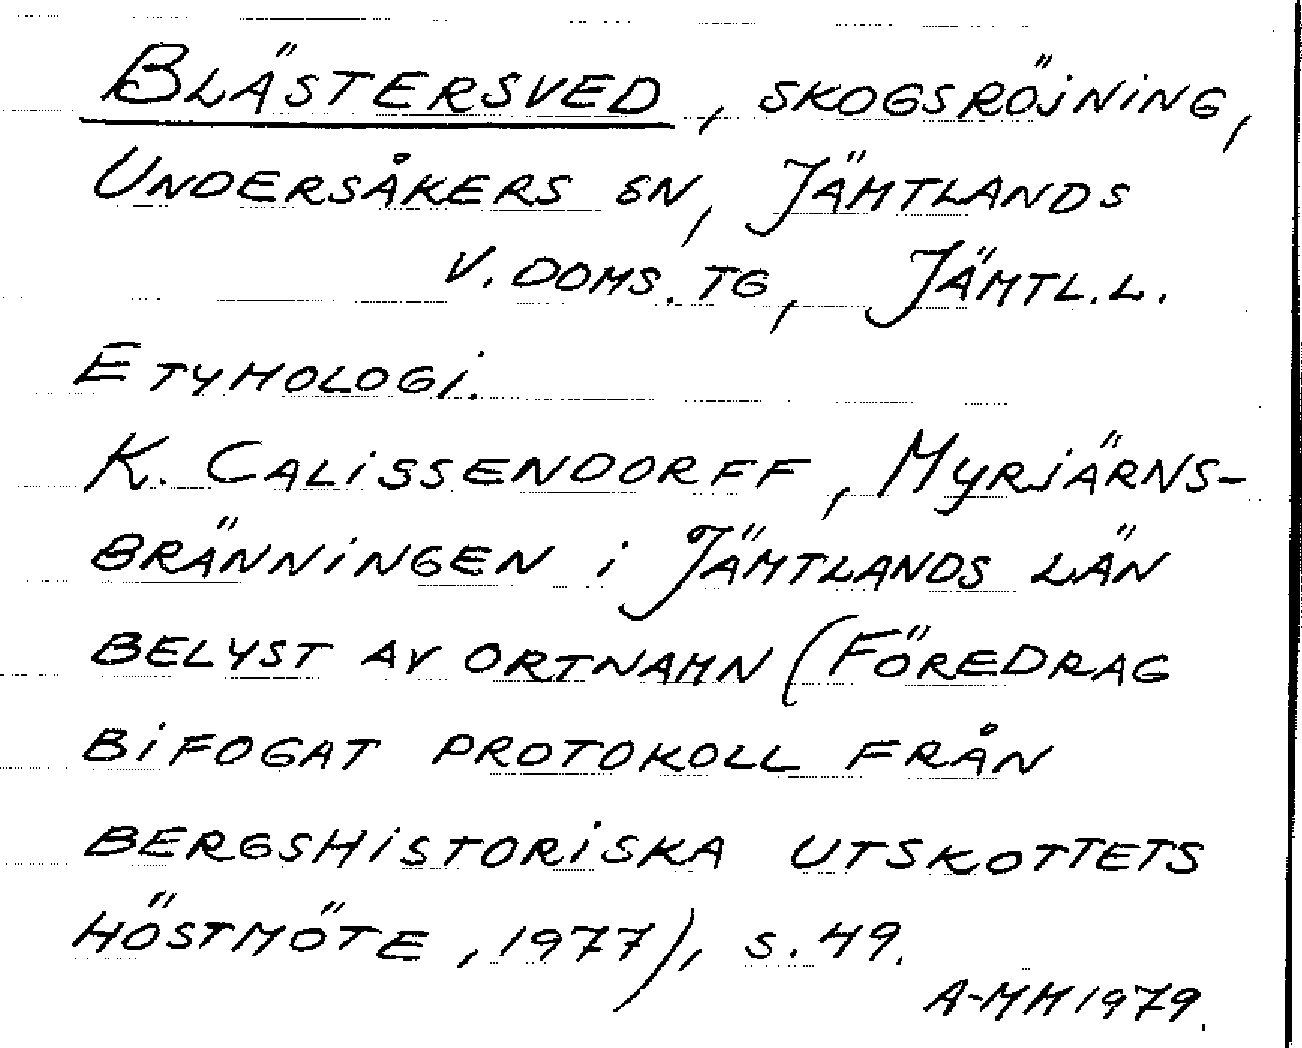 BLÄSTERSVED, SKOGSRÖJNING,
UNDERSÅKERS SN, JÄMTLANDS
V. DOMS. TG, JÄMTL.L.
ETYMOLOGI.
K. CALISSENDORFF, MYRJÄRNS-
BRÄNNINGEN I JÄMTLANDS LÄN
BELYST AV ORTNAMN (FÖREDRAG
BIFOGAT PROTOKOLL FRÅN
BERGSHISTORISKA UTSKOTTETS
HÖSTMÖTE, 1977), S. 49.
A-MM 1979.